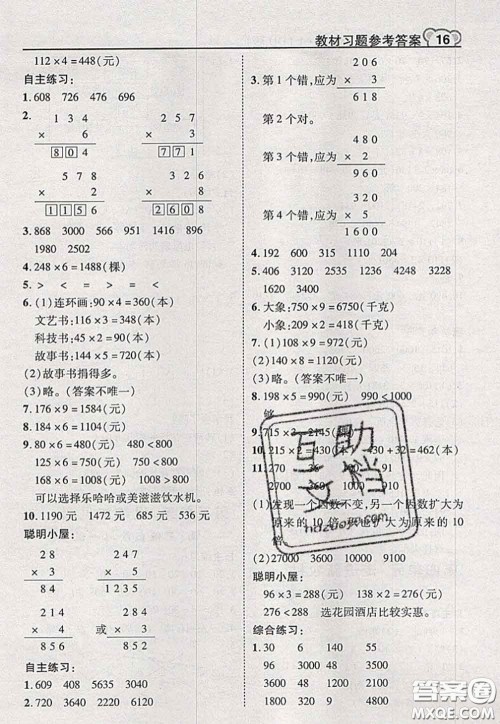 教材习题参考答案 16
112×4=448(元)
自主练习:
1. 608 726 476 696
2. 134 257
× 6 × 3
804 771
578 326
× 2 × 8
1156 2608
3. 868 3000 566 951 1416 896
1980 2502
4. 248×6=1488(棵)
5. > < > = <
6. (1)连环画:90×4=360(本)
文艺书:116×3=348(本)
科技书:45×2=90(本)
故事书:144×5=720(本)
(2)故事书捐得多。
(3)略。(答案不唯一)
7. 176×9=1584(元)
8. 264×6=1584(元)
9. 80×6=480(元) 480<800
125×6=750(元) 750<800
168×6=1008(元) 1008>800
可以选择乐哈哈或美滋滋饮水机。
10. 1190元 1472元 685元 536元
聪明小屋:
28 247
× 3 × 5
84 1235
214 284
× 4 或 × 3
856 852
自主练习:
1. 609 408 5635 3040
2. 720 840 6636 4540
206
3. 第1个错,应为 × 3
618
第2个对。
480
第3个错,应为 × 2
960
320
第4个错,应为 × 5
1600
4. 192 600 315 1110 204
5. 406 3120 2535 1236 4248 3228
1620 3400
6. 大象:750×9=6750(千克)
小象:209×2=418(千克)
7. (1)108×9=972(元)
(2)140×8=1120(元)
(3)略。(答案不唯一)
8. 198×5=990(元) 990<1000
够
9. 715×3=2145(元)
10. 215×2=430(本) 430+32=462(本)
11. 270 36 190
2700 360 1900
27000 3600
(1)发现一个因数不变,另一个因数扩大为
原来的10倍,积也扩大为原来的
10倍。
(2)27000 3600 12000 40000
聪明小屋:
96×3=288(元) 138×2=276(元)
276<288 选花园酒店比较实惠。
综合练习:
1. 30 6 140 55
96 3000 4000 100
3000 48 4000 36
360 4500 320 9
互助文档
hdzuoye.com
答案圈
MXQE.COM